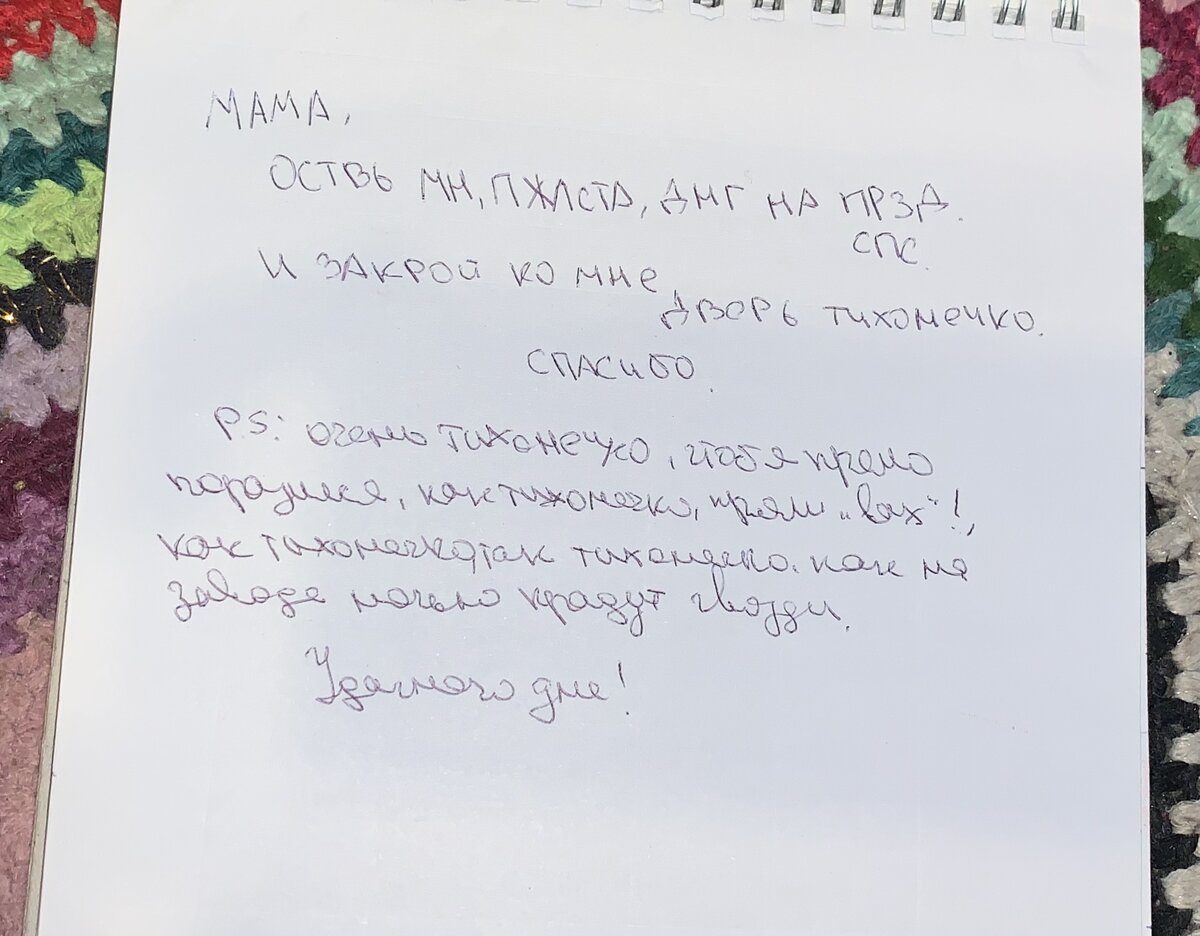 МАМА,
ОСТВЬ МН, ПЖЛСТА, ДНГ НА ПРЗД.
СПС.
И ЗАКРОЙ КО МНЕ
ДВЕРЬ ТИХОНЕЧКО.
СПАСИБО.
P.S: очень тихонечко, чтоб я прямо
поразился, как тихонечко, прям „вах"!,
как тихонечко, так тихонечко. как на
заводе ночью крадут гвозди.
Удачного дня!